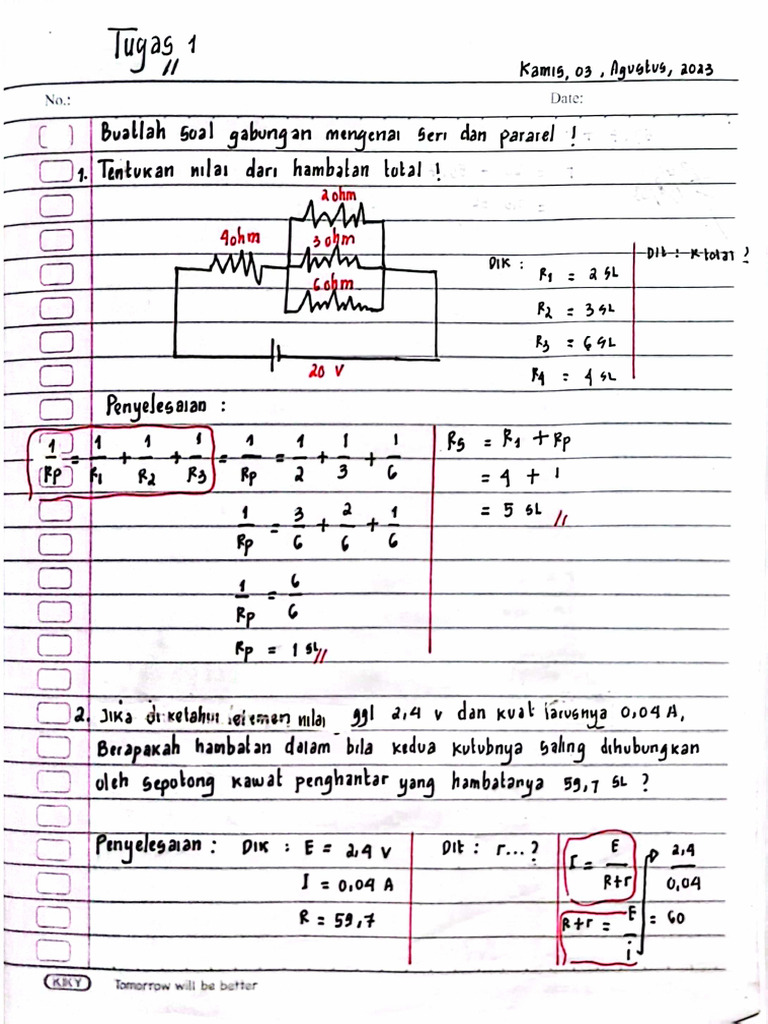 Tugas 1
Kamis, 03, Agustus, 2023
No.:
Date:
Buatlah soal gabungan mengenai seri dan pararel !
1. Tentukan nilai dari hambatan total !
2 ohm
4 ohm
3 ohm
6 ohm
20 V
DIK :
R1 = 2 Ω
R2 = 3 Ω
R3 = 6 Ω
R4 = 4 Ω
Dit : R total ?
Penyelesaian :
1/Rp = 1/R1 + 1/R2 + 1/R3 = 1/Rp = 1/2 + 1/3 + 1/6
1/Rp = 3/6 + 2/6 + 1/6
1/Rp = 6/6
Rp = 1 Ω //
Rs = R1 + Rp
= 4 + 1
= 5 Ω //
2. Jika diketahui elemen nilai ggl 2,4 v dan kuat larusnya 0,04 A,
Berapakah hambatan dalam bila kedua kutubnya saling dihubungkan
oleh sepotong kawat penghantar yang hambatanya 59,7 Ω ?
Penyelesaian : DIK : E = 2,4 V
I = 0,04 A
R = 59,7
Dit : r...?
I = E/R+r
R+r = E/i
2,4/0,04
= 60
KIKY
Tomorrow will be better